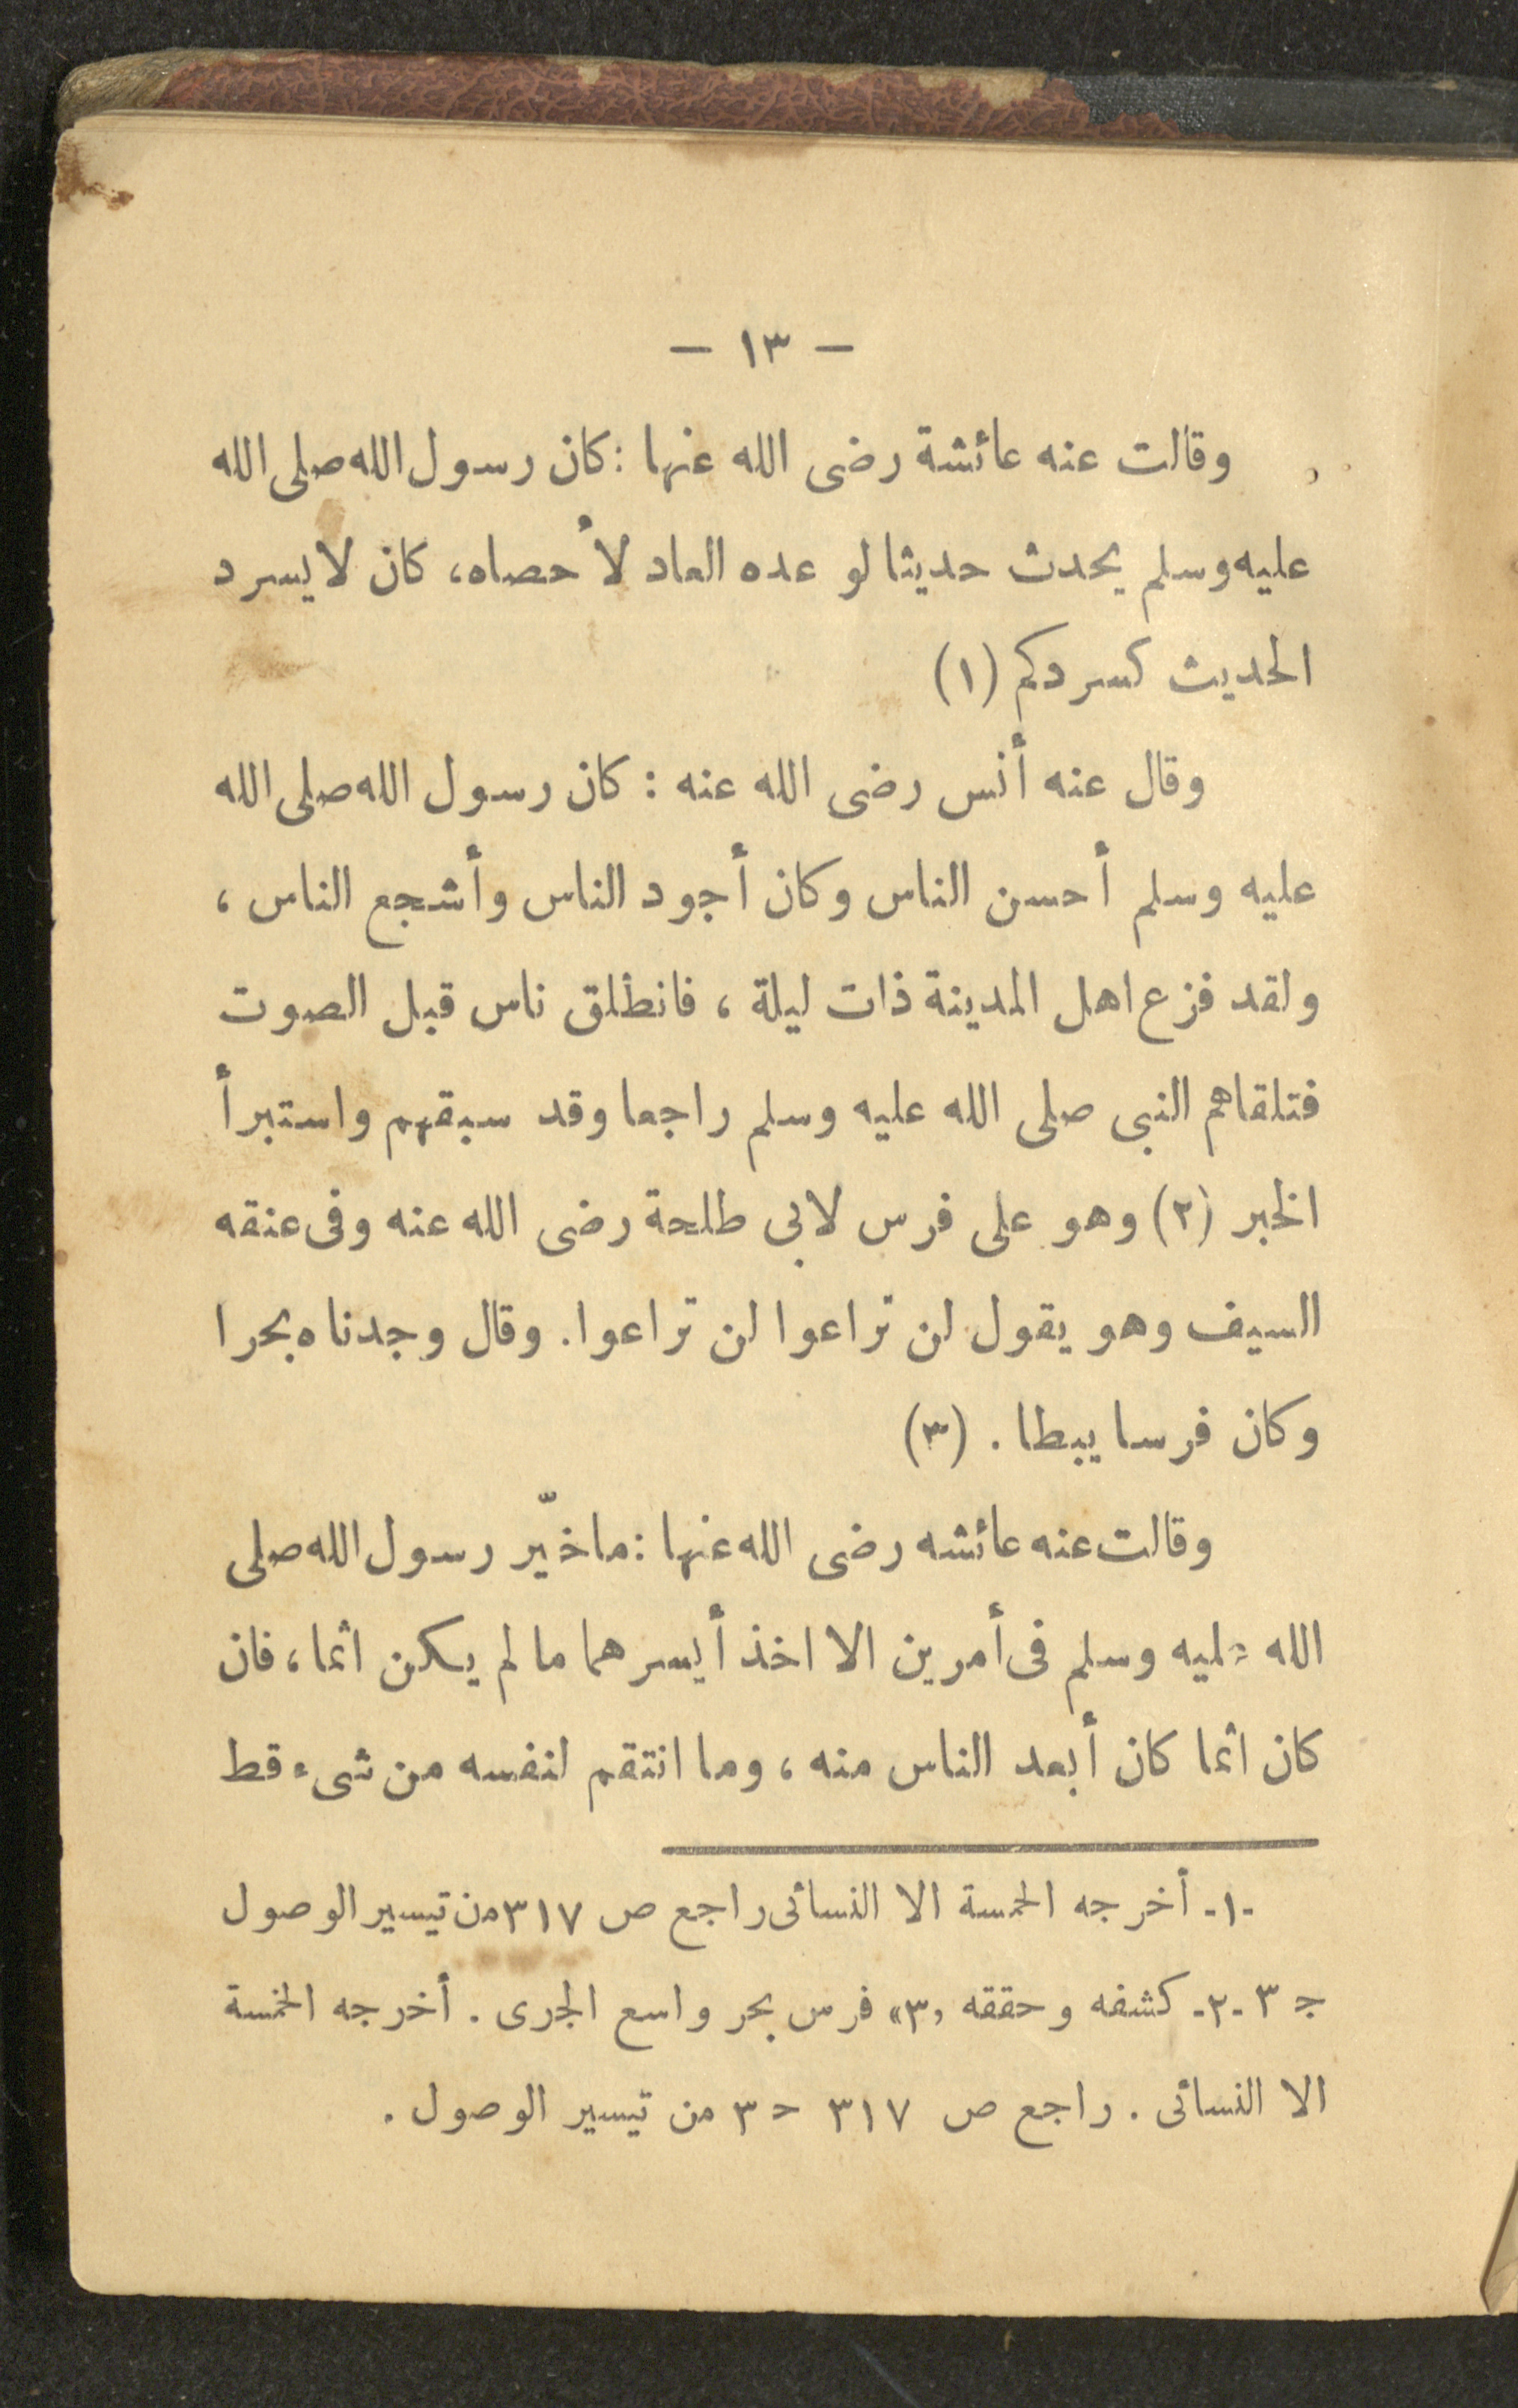 — ١٣ —
وقالت عنه عائشة رضى الله عنها : كان رسول الله صلى الله
عليه وسلم يحدث حديثا لو عده العاد لأحصاه، كان لا يسرد
الحديث كسردكم (١)
وقال عنه أنس رضى الله عنه : كان رسول الله صلى الله
عليه وسلم أحسن الناس وكان أجود الناس وأشجع الناس ،
ولقد فزع اهل المدينة ذات ليلة ، فانطلق ناس قبل الصوت
فتلقاهم النبى صلى الله عليه وسلم راجعا وقد سبقهم واستبرأ
الخبر (٢) وهو على فرس لابى طلحة رضى الله عنه وفى عنقه
السيف وهو يقول لن تراعوا لن تراعوا. وقال وجدناه بحرا
وكان فرسا يبطا . (٣)
وقالت عنه عائشه رضى الله عنها : ما خيّر رسول الله صلى
الله عليه وسلم فى أمرين الا اخذ أيسرهما ما لم يكن اثما، فان
كان اثما كان أبعد الناس منه ، وما انتقم لنفسه من شىء قط
-١- أخرجه الخمسة الا النسائى راجع ص ٣١٧ من تيسير الوصول
ج ٣ -٢- كشفه وحققه «٣» فرس بحر واسع الجرى . أخرجه الخمسة
الا النسائى . راجع ص ٣١٧ ح ٣ من تيسير الوصول .